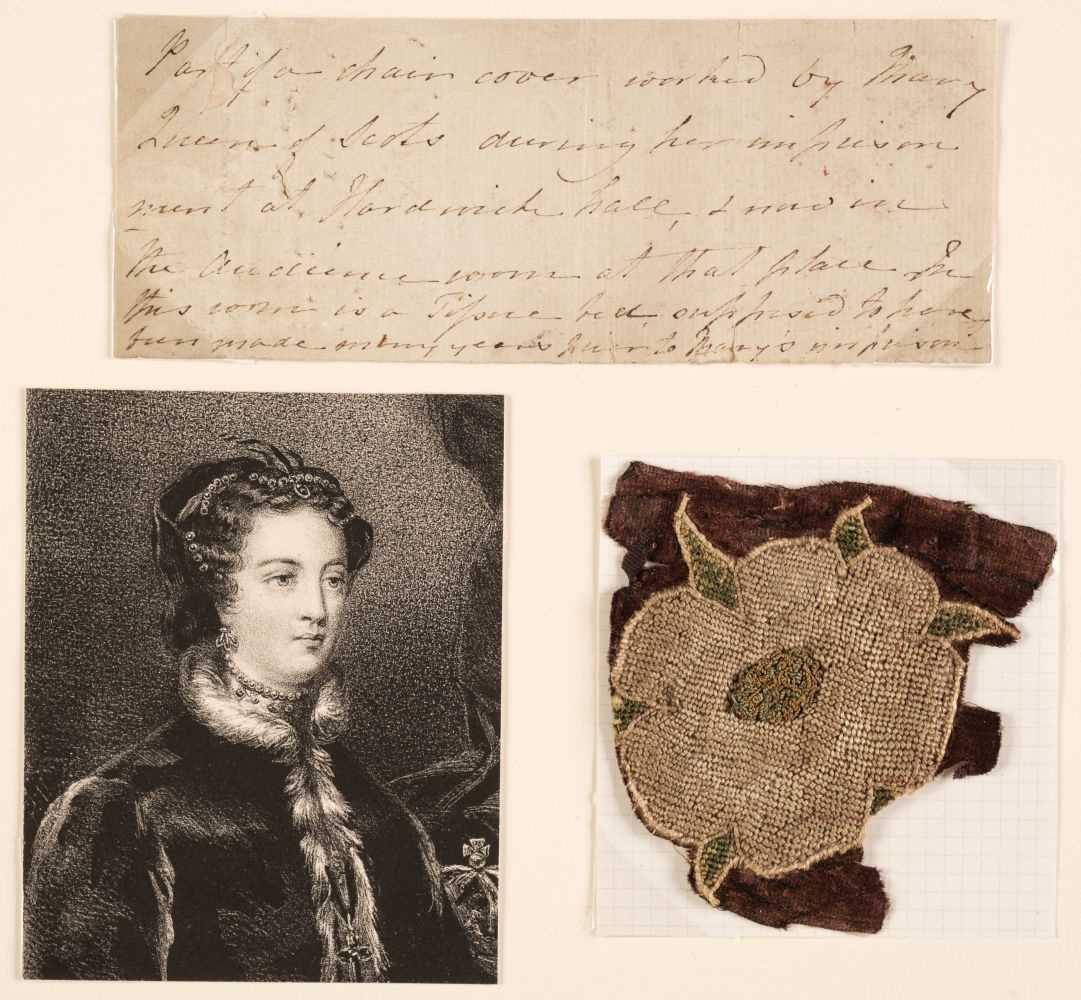 Part of a chair cover worked by Mary
Queen of Scots during her imprison
ment at Hardwick hall, & now in
the Audience room at that place In
this room is a Tissue bed, supposed to have
been made many years prior to Mary's imprison